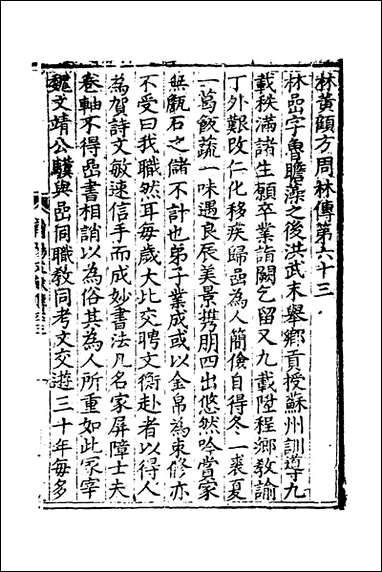 林黃顧方周林傳第六十三
林嵒字魯瞻藻之後洪武末舉鄉貢授蘇州訓導九
載秩滿諸生願卒業詣闕乞留又九載陞程鄉教諭
丁外艱改仁化移疾歸嵒為人簡儉自得冬一裘夏
一葛飯蔬一味遇良辰美景携朋四出悠然吟嘗家
無甔石之儲不計也弟子業成或以金帛為束脩亦
不受曰我職然耳每歲大比交聘文衡赴者以得人
為賀詩文敏速信手而成妙書法凡名家屏障士夫
卷軸不得嵒書相誚以為俗其為人所重如此冢宰
魏文靖公驥與嵒同職教同考文交遊三十年每多